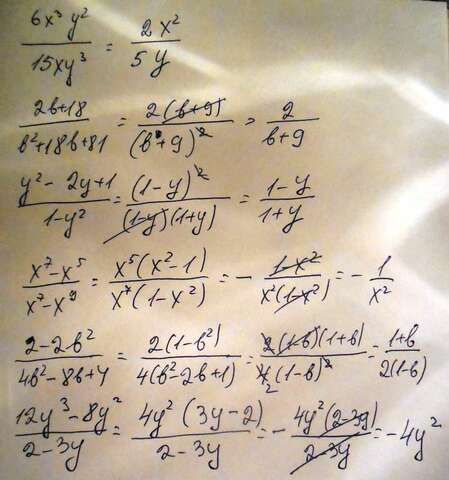 6x³y²/15xy³ = 2x²/5y
2b+18/b²+18b+81 = 2(b+9)/(b+9)² = 2/b+9
y²-2y+1/1-y² = (1-y)²/(1-y)(1+y) = 1-y/1+y
x⁷-x⁵/x⁷-x⁹ = x⁵(x²-1)/x⁷(1-x²) = - 1-x²/x²(1-x²) = - 1/x²
2-2b²/4b²-8b+4 = 2(1-b²)/4(b²-2b+1) = 2(1-b)(1+b)/4₂(1-b)² = 1+b/2(1-b)
12y³-8y²/2-3y = 4y²(3y-2)/2-3y = - 4y²(2-3y)/2-3y = -4y²